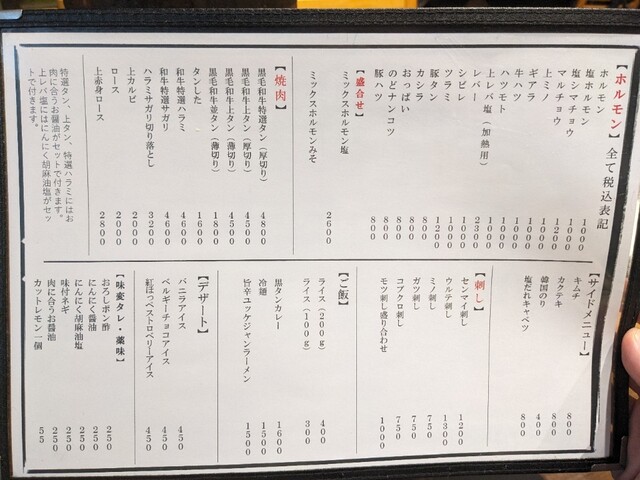 【ホルモン】 全て税込表記
ホルモン 1000
塩ホルモン 1000
塩シマチョウ 1000
マルチョウ 1000
上ミノ 1200
ギアラ 1000
牛ハツ 1000
ハツモト 1000
上レバ塩(加熱用) 2300
レバー 1000
シビレ 1000
ツラミ 1200
豚タン 800
カシラ 800
おっぱい 800
のどナンコツ 800
豚ハツ 800
【盛合せ】
ミックスホルモン塩
ミックスホルモンみそ 2600
【焼肉】
黒毛和牛特選タン(厚切り) 4800
黒毛和牛上タン(厚切り) 4500
黒毛和牛上タン(薄切り) 4500
黒毛和牛並タン(薄切り) 1800
タンした 1600
和牛特選ハラミ 4600
和牛特選サガリ 4600
ハラミサガリ切り落とし 3200
上カルビ 2000
ロース 2000
上赤身ロース 2800
特選タン、上タン、特選ハラミにはお
肉に合うお醤油がセットで付きます。
上レバ塩にはにんにく胡麻油塩がセッ
トで付きます。
【サイドメニュー】
キムチ 800
カクテキ 800
韓国のり 400
塩だれキャベツ 800
【刺し】
センマイ刺し 1200
ウルテ刺し 1300
ミノ刺し 750
ガツ刺し 750
コブクロ刺し 750
モツ刺し盛り合わせ 1000
【ご飯】
ライス(200g) 400
ライス(100g) 300
黒タンカレー 1600
冷麺 1500
旨辛ユッケジャンラーメン 1500
【デザート】
バニラアイス 450
ベルギーチョコアイス 450
紅ほっぺストロベリーアイス 450
【味変タレ・薬味】
おろしポン酢 250
にんにく醤油 250
にんにく胡麻油塩 250
味付ネギ 250
肉に合うお醤油 250
カットレモン一個 55